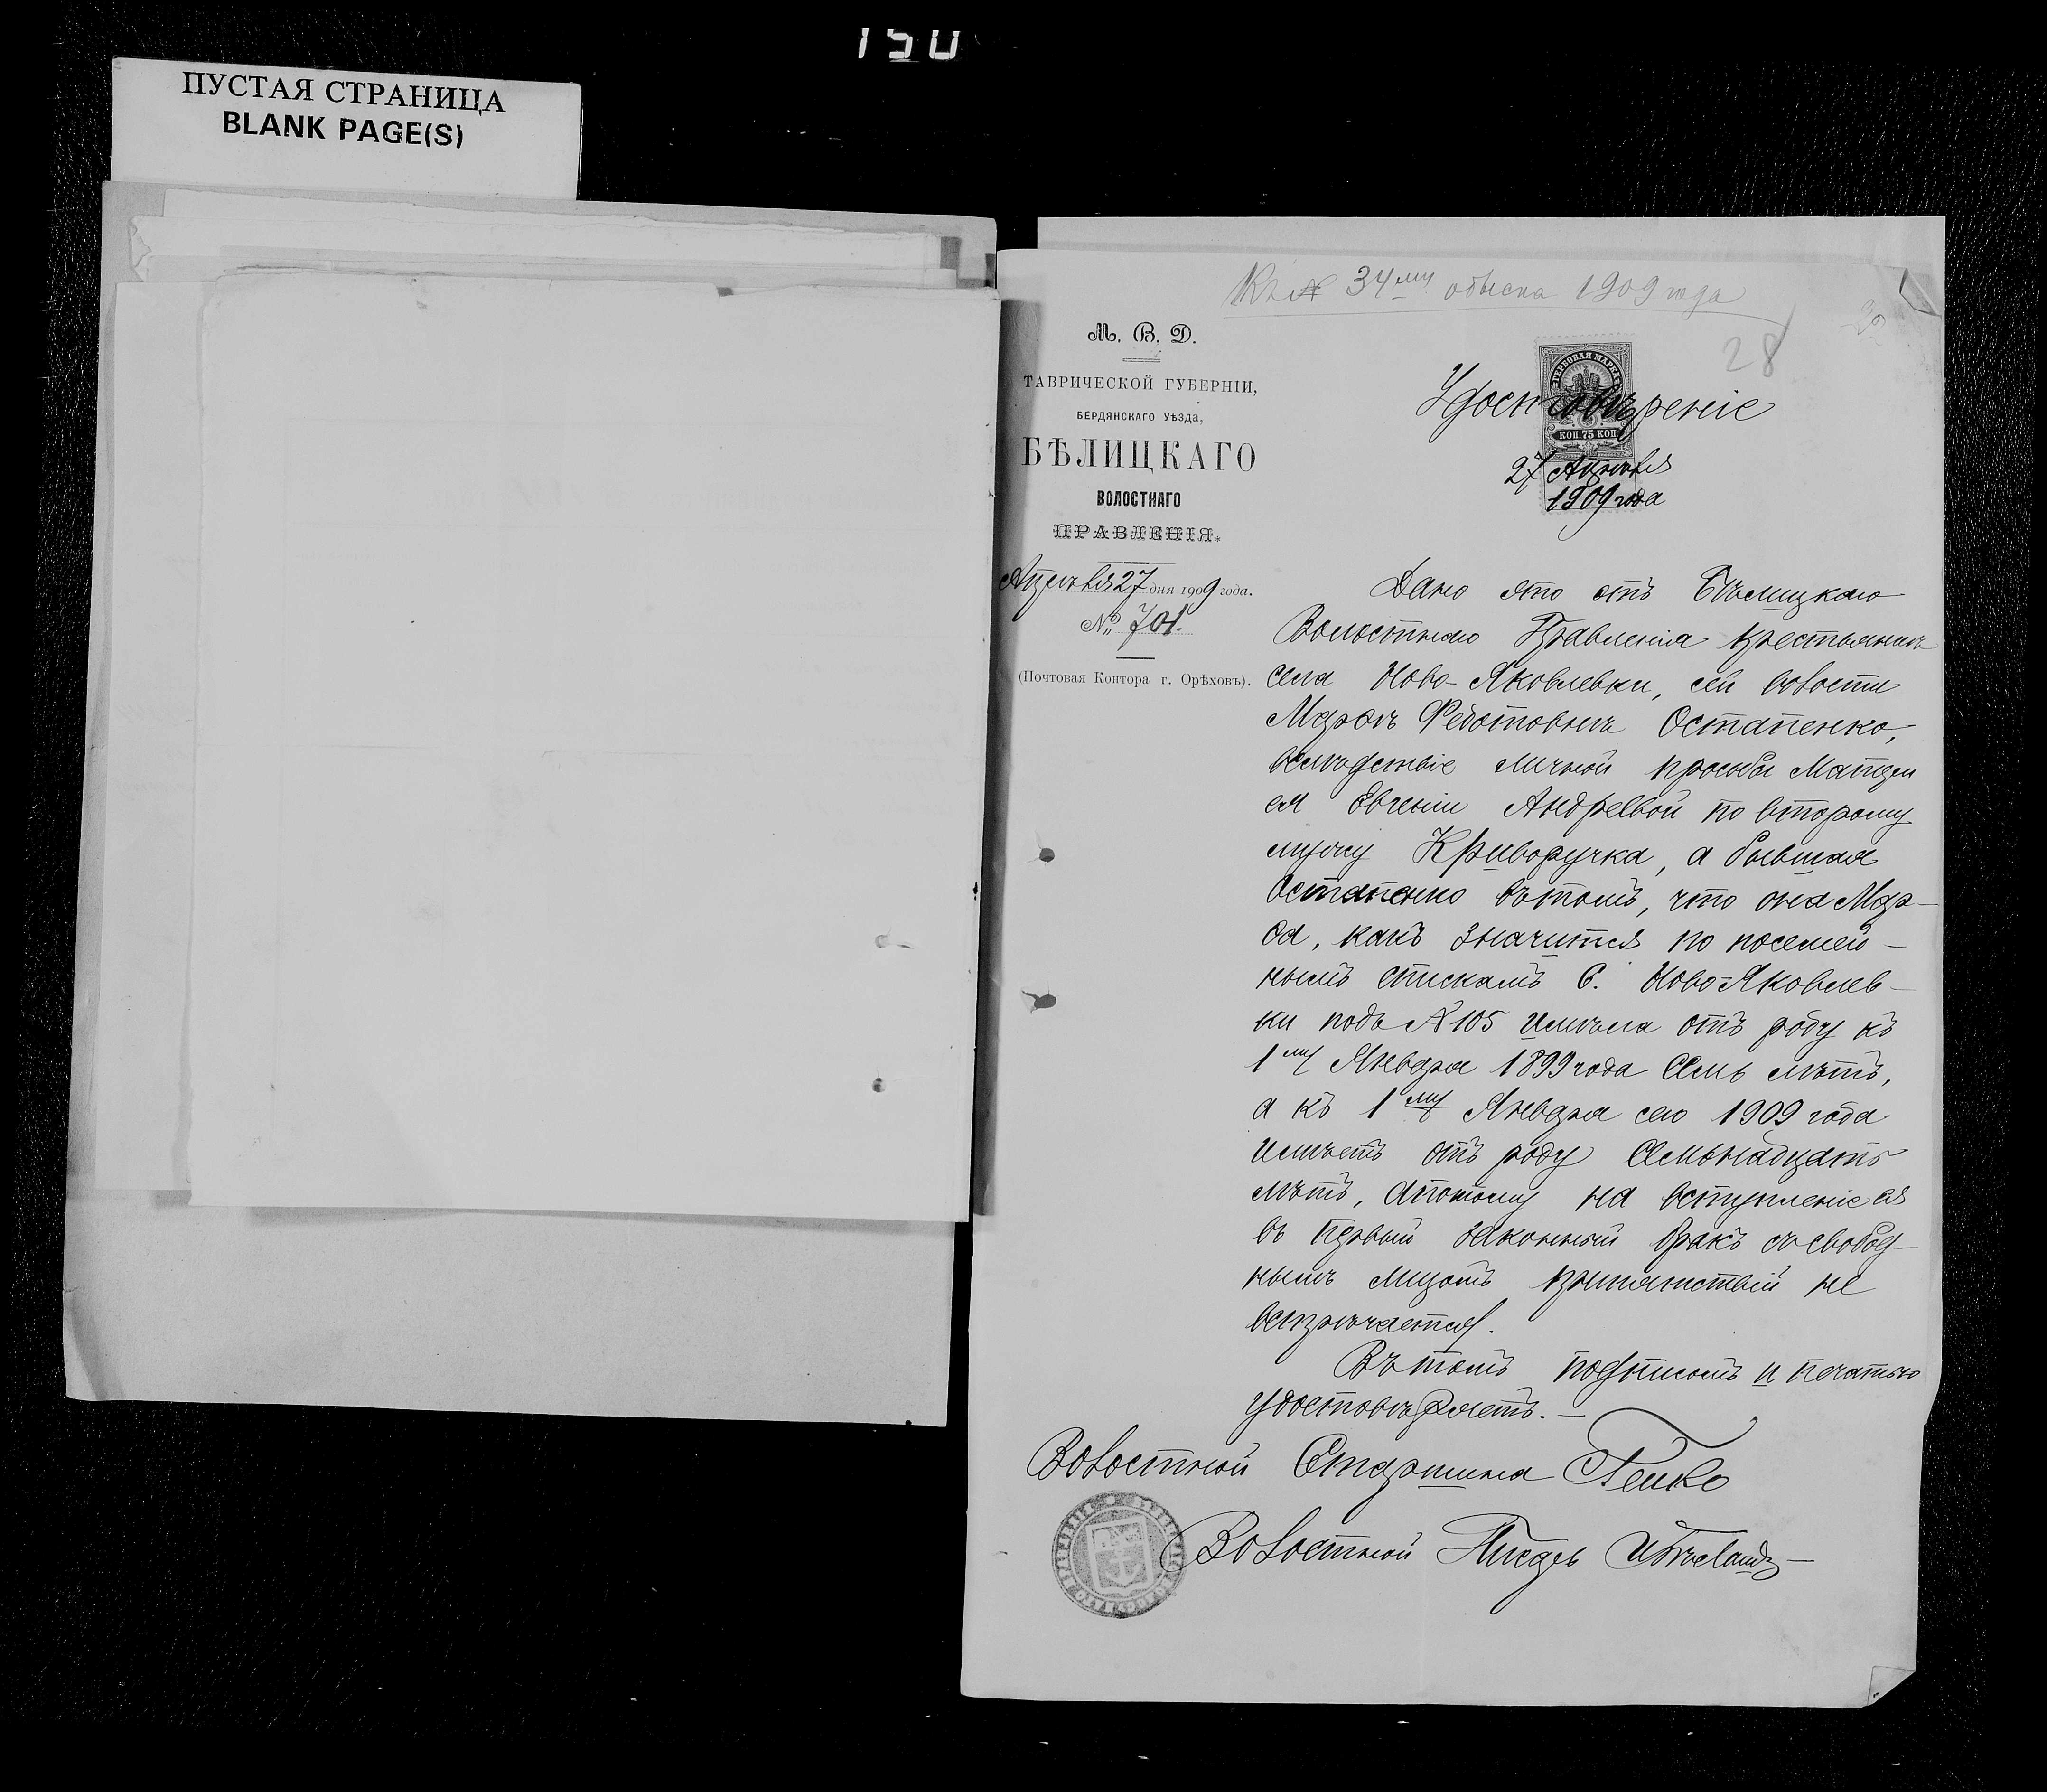 150
ПУСТАЯ СТРАНИЦА
BLANK PAGE(S)
Къ № 34му обыска 1909 года
28
М. В. Д.
ТАВРИЧЕСКОЙ ГУБЕРНІИ,
БЕРДЯНСКАГО УѢЗДА,
БѢЛИЦКАГО
ВОЛОСТНАГО
ПРАВЛЕНІЯ.
Апрѣля 27 дня 1909 года.
№ 701.
(Почтовая Контора г. Орѣховъ).
ГЕРБОВАЯ МАРКА
КОП. 75 КОП
Удостовѣреніе
27 Апрѣля
1909 года
Дано это отъ Бѣлицкаго
Волостного Правленія крестьянкѣ
села Ново-Яковлевки, сей волости
Марѳѣ Федотовнѣ Остапенко,
вслѣдствіе личной просьбы Матери
ея Евгеніи Андреевой по второму
мужу Криворучка, а бывшая
Остапенко въ томъ, что она Мар-
ѳа, какъ значится по посемей-
нымъ спискамъ с. Ново-Яковлев-
ки подъ № 105 имѣла отъ роду къ
1му Января 1899 года семь лѣтъ,
а къ 1му Января сего 1909 года
имѣетъ отъ роду семьнадцать
лѣтъ, а потому на вступленіе ея
въ первый законный бракъ съ свобод-
нымъ лицомъ препятствій не
встрѣчается.
Въ томъ подписомъ и печатью
удостовѣряетъ.
Волостной Старшина
Волостной Писарь